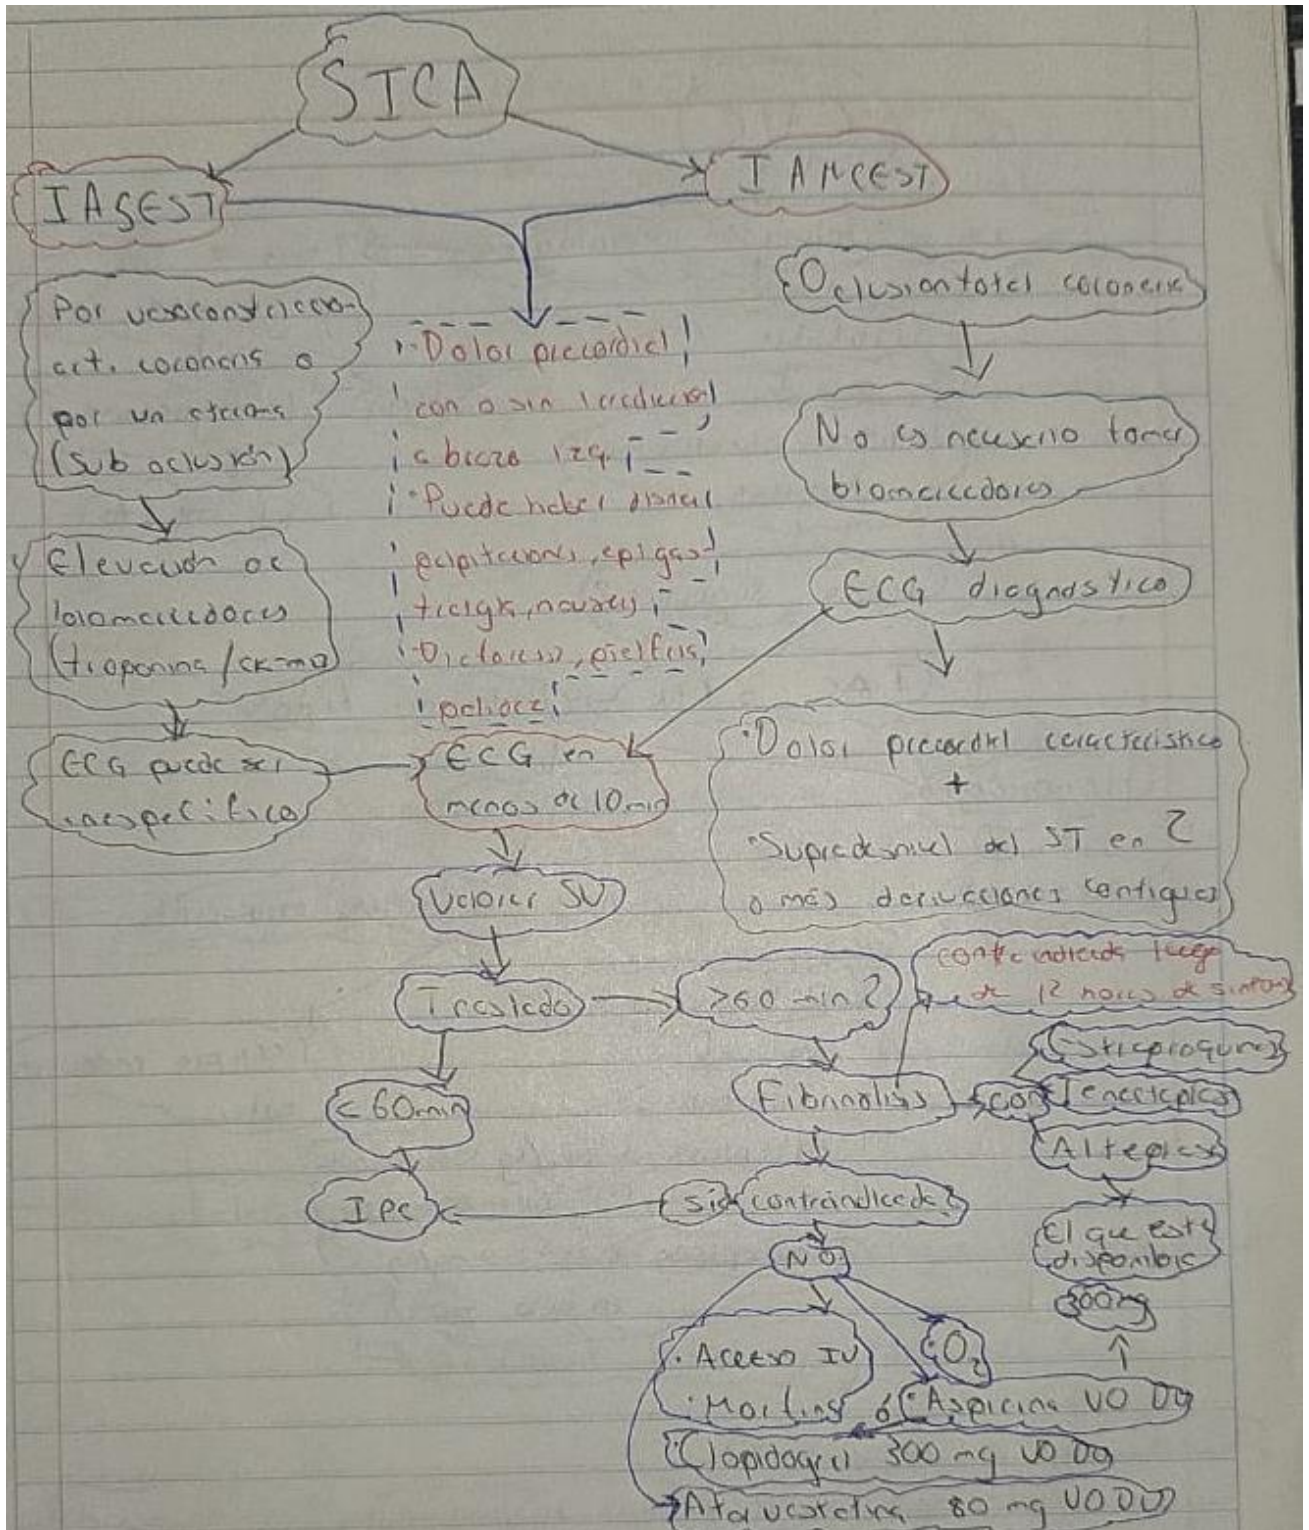 SICA
IASEST
IAMCEST
Por vasoconstricción
art. coronaria o
por un ateroma
(sub oclusión)
Elevación de
biomarcadores
(troponina / CK-MB)
ECG puede ser
inespecífico
· Dolor precordial
con o sin irradiación
a brazo izq.
· Puede haber disnea
palpitaciones, epigas-
tralgia, nauseas,
Diaforesis, piel fria,
palidez
Oclusion total coronaria
No es necesario tomar
biomarcadores
ECG diagnostico
· Dolor precordial caracteristico
+
· Supradesnivel del ST en 2
o más derivaciones contiguas
ECG en
menos de 10 min
Valorar SV
Traslado
>60 min?
contraindicada luego
de 12 horas de sintomas
< 60 min
IPC
Fibrinolisis
con
Estreptoquinasa
Tenecteplasa
Alteplasa
El que este
disponible
Si
contraindicada?
NO
· Acceso IV
· Morfina ó
· O2
· Aspirina VO
300mg
· Clopidogrel 300 mg VO
Atorvastatina 80 mg VO